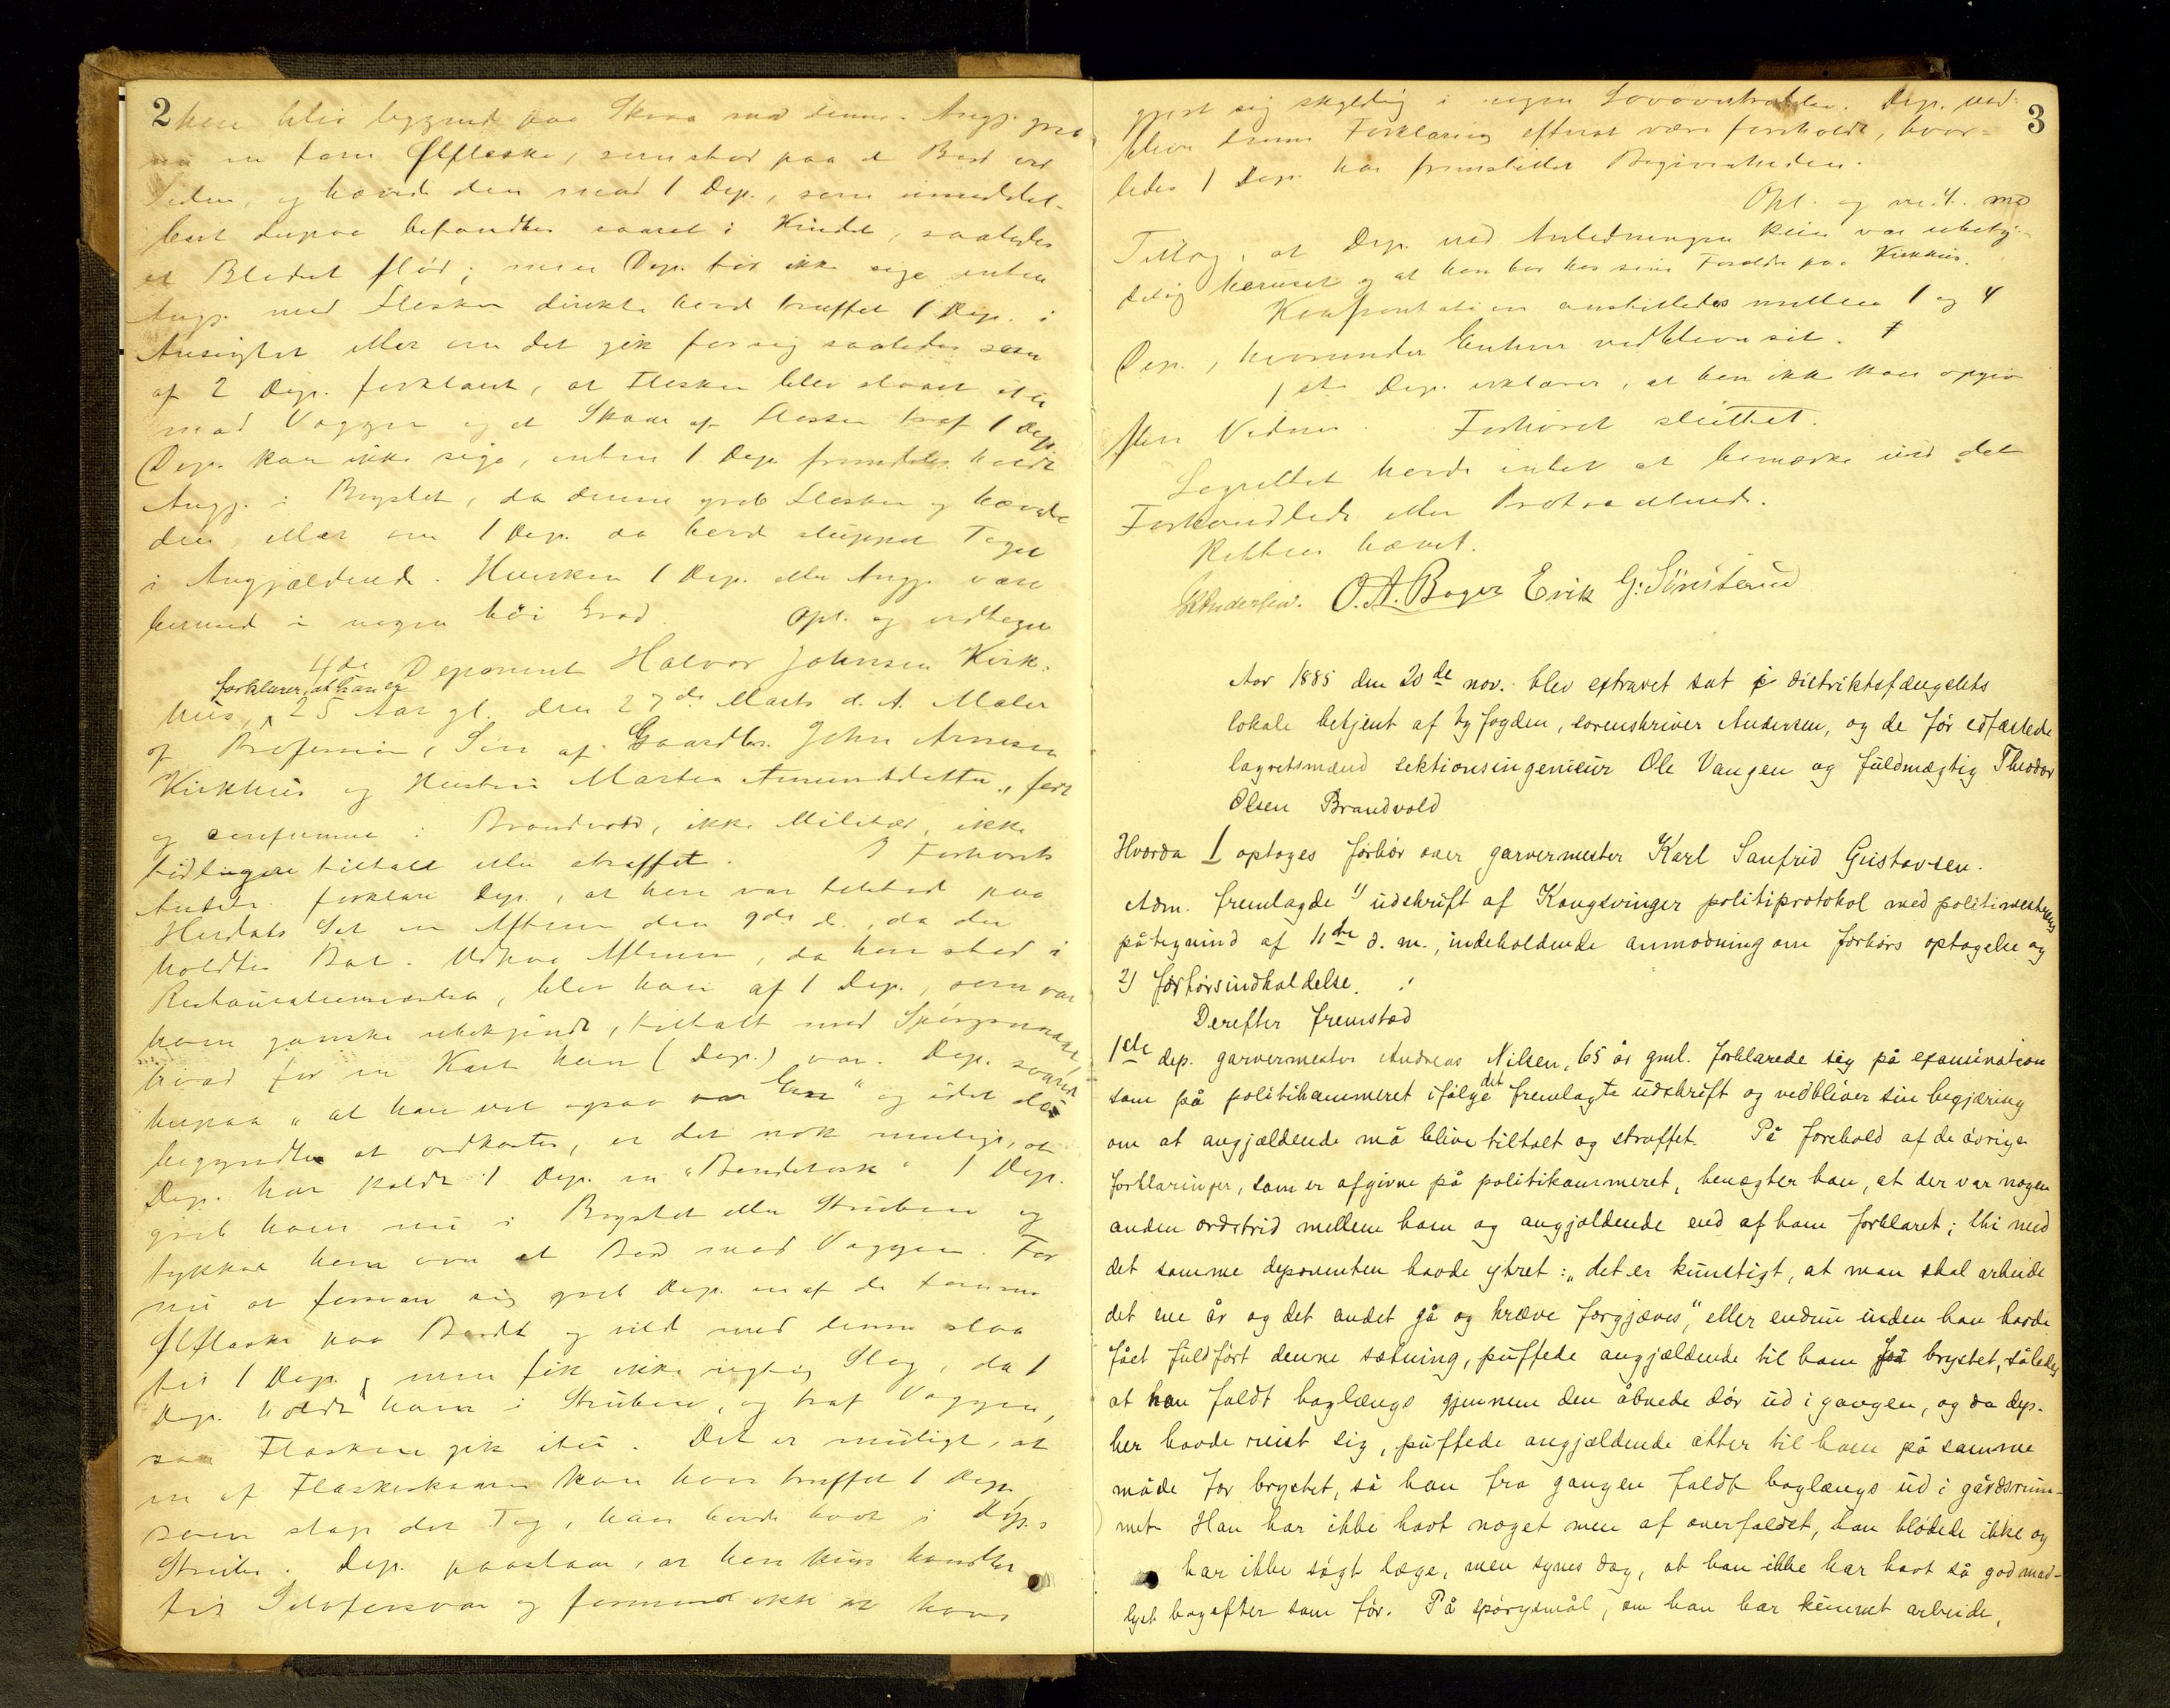 2
han blev liggende paa Skraa mod denne. Angj. greb
nu en tom Ølflaske, som stod paa et Bord ved
Siden, og hævede den mod 1 Dep., som umiddel-
bart derpaa befandtes saaret i Kindet, saaledes
at Blodet flød; men Dep. tør ikke sige enten
Angj. med Flasken direkte havde truffet 1 Dep. i
Ansigtet eller om det gik for sig saaledes som
af 2 Dep. forklaret, at Flasken blev slaaet itu
mod Væggen og et Skaar af Flasken traf 1 Dep.
Dep. kan ikke sige, enten 1 Dep. fremdeles holdt
Angj. i Brystet, da denne greb Flasken og hævede
den, eller om 1 Dep. da havde sluppet Taget
i Angjældende. Hverken 1 Dep. eller Angj. vare
berused i nogen høi Grad. Opl. og vedtaget
4de Deponent Halvor Johnsen Kirk-
forklarer, at han er
hus, 25 Aar gl. den 27de Marts d. A. Maler
af Profession, Søn af Gaardbr. John Arnesen
Kirkhus og Hustru Marthea Amundsdatter, født
og confirmeret i Brandvold, ikke Militær, ikke
tidligere tiltalt eller straffet. I Forhørets
Anledn. forklarer Dep., at han var tilstede paa
Sal en Aften den 9de d., da der
holdtes Bal. Udpaa Aftenen, da han stod i
Restaurationsværelset, blev han af 1 Dep., som var
ham ganske ubekjendt, tiltalt med Spørgsmaal,
hvad for en Kar han (Dep.) var. Dep. svarede
herpaa "at han vel ogsaa var Een" og idet de
begyndte at ordkastes, er det nok muligt, at
Dep. har kaldt 1 Dep. en "Bondetorsk". 1 Dep.
greb ham nu i Brystet eller Struben og
trykkede ham over et Bord mod Væggen. For
nu at forsvare sig greb Dep. en af de tomme
Ølflasker paa Bordet og vilde med denne slaa
til 1 Dep., men fik ikke rigtig Slag, da 1
Dep. holdt ham i Struben, og traf Væggen,
saa Flasken gik itu. Det er muligt, at
en af Flaskeskaarene kan have truffet 1 Dep.,
som slap det Tag, han havde havt i Dep.s
Strube. Dep. paastaar, at han kun handlede
til Selvforsvar og formener ikke at have
3
gjort sig skyldig i nogen Lovovertrædelse. Dep. ved-
blev denne Forklaring efterat være foreholdt, hvor-
ledes 1 Dep. har fremstillet Begivenheden.
Opl. og vedt. med
Tillæg, at Dep. ved Anledningen kun var ubety-
delig beruset og at han bor hos sine Forældre paa Kirkhus.
Konfrontation anstilledes mellem 1 og 4
Dep., hvorunder Enhver vedblev sit.
1ste Dep. erklærer, at han ikke kan opgive
flere Vidner. Forhøret sluttet.
Lagrettet havde intet at bemærke ved det
Forhandlede eller Protokollerede.
Retten hævet.
Andersen. O. A. Boger Erik G. Sønsterud
Aar 1885 den 20de nov. blev extraret sat i distriktsfængslets
lokale betjent af byfogden, sorenskriver Andersen, og de før edfæstede
lagretsmænd sektionsingeniør Ole Vangen og fuldmægtig Theodor
Olsen Brandvold
Hvorda 1 optoges forhør over garvermester Karl Sanfrid Gustavsen.
Adm. fremlagde 1) udskrift af Kongsvinger politiprotokol med politimesterens
påtegnind af 11te d. m., indeholdende anmodning om forhørs optagelse og
2) forhørsindkaldelse.
Derefter fremstod
1ste dep. garvermester Andreas Nilsen, 65 år gml. forklarede sig på examination
som på politikammeret ifølge det fremlagte udskrift og vedbliver sin begjæring
om at angjældende må blive tiltalt og straffet. På forehold af de øvrige
forklaringer, som er afgivne på politikammeret, benægter han, at der var nogen
anden ordstrid mellem ham og angjældende end af ham forklaret; thi med
det samme deponenten havde ytret: "det er kunstigt, at man skal arbeide
det ene år og det andet gå og kræve forgjæves," eller endnu inden han havde
fået fuldført denne sætning, puffede angjældende til ham for brystet, således
at han faldt baglængs gjennem den åbnede dør ud i gangen, og da dep.
her havde reist sig, puffede angjældende atter til ham på samme
måde for brystet, så han fra gangen faldt baglængs ud i gårdsrum-
met. Han har ikke havt noget men af overfaldet, han blødede ikke og
har ikke søgt læge, men synes dog, at han ikke har havt så god mad-
lyst bagefter som før. På spørgsmål, om han har kunnet arbeide,